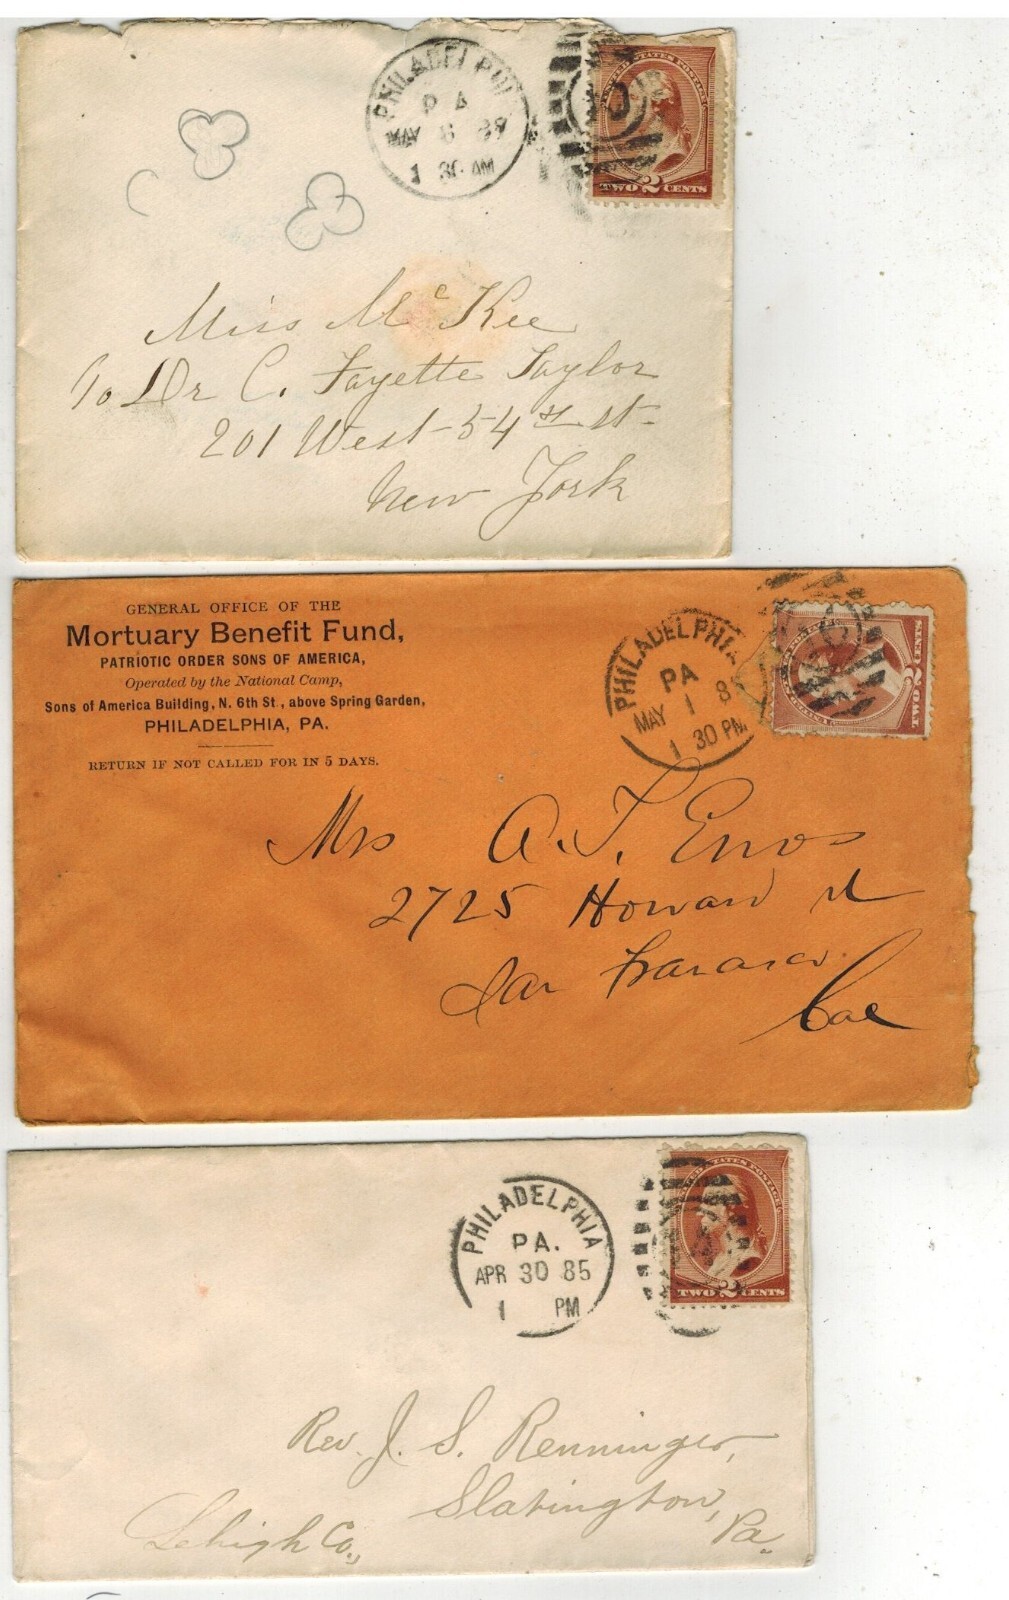 PHILADELPHI
PA
MAY 6 89
1 30 AM
UNITED STATES POSTAGE
TWO 2 CENTS
Miss McKee
To Dr C. Fayette Taylor
201 West 54th st.
New York
GENERAL OFFICE OF THE
Mortuary Benefit Fund,
PATRIOTIC ORDER SONS OF AMERICA,
Operated by the National Camp,
Sons of America Building, N. 6th St., above Spring Garden,
PHILADELPHIA, PA.
RETURN IF NOT CALLED FOR IN 5 DAYS.
PHILADELPHIA
PA
MAY 1 8
1 30 PM.
TWO 2 CENTS
Mrs A. T. Enos
2725 Howard st
San Francisco.
Cal
PHILADELPHIA
PA.
APR 30 85
1 PM
UNITED STATES POSTAGE
TWO 2 CENTS
Rev. J. S. Renninger,
Slatington,
Lehigh Co., Pa.